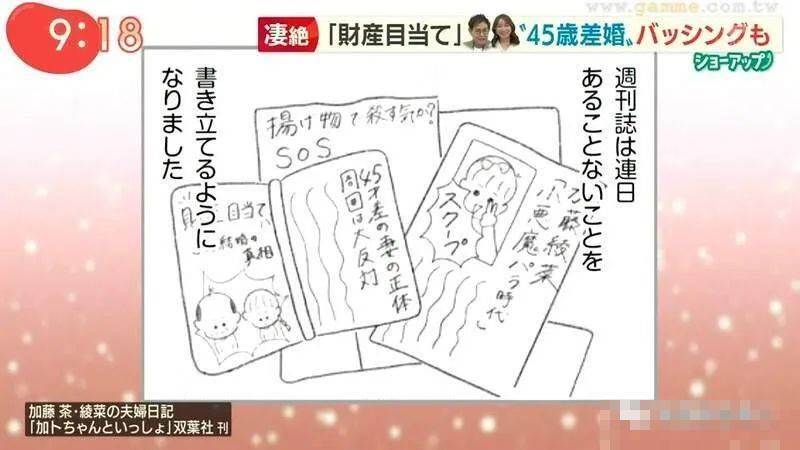 www.gamme.com.tw
9:18
凄絶 「財産目当て」 〝45歳差婚〟バッシングも
ショーアップ
週刊誌は連日
あることないことを
書き立てるように
なりました
揚げ物で殺す気か?
SOS
目当て
結婚の
真相
45才差の妻の正体
周囲は大反対
スクープ
加藤綾菜
小悪魔パラ時代
加藤 茶・綾菜の夫婦日記
「加トちゃんといっしょ」双葉社 刊